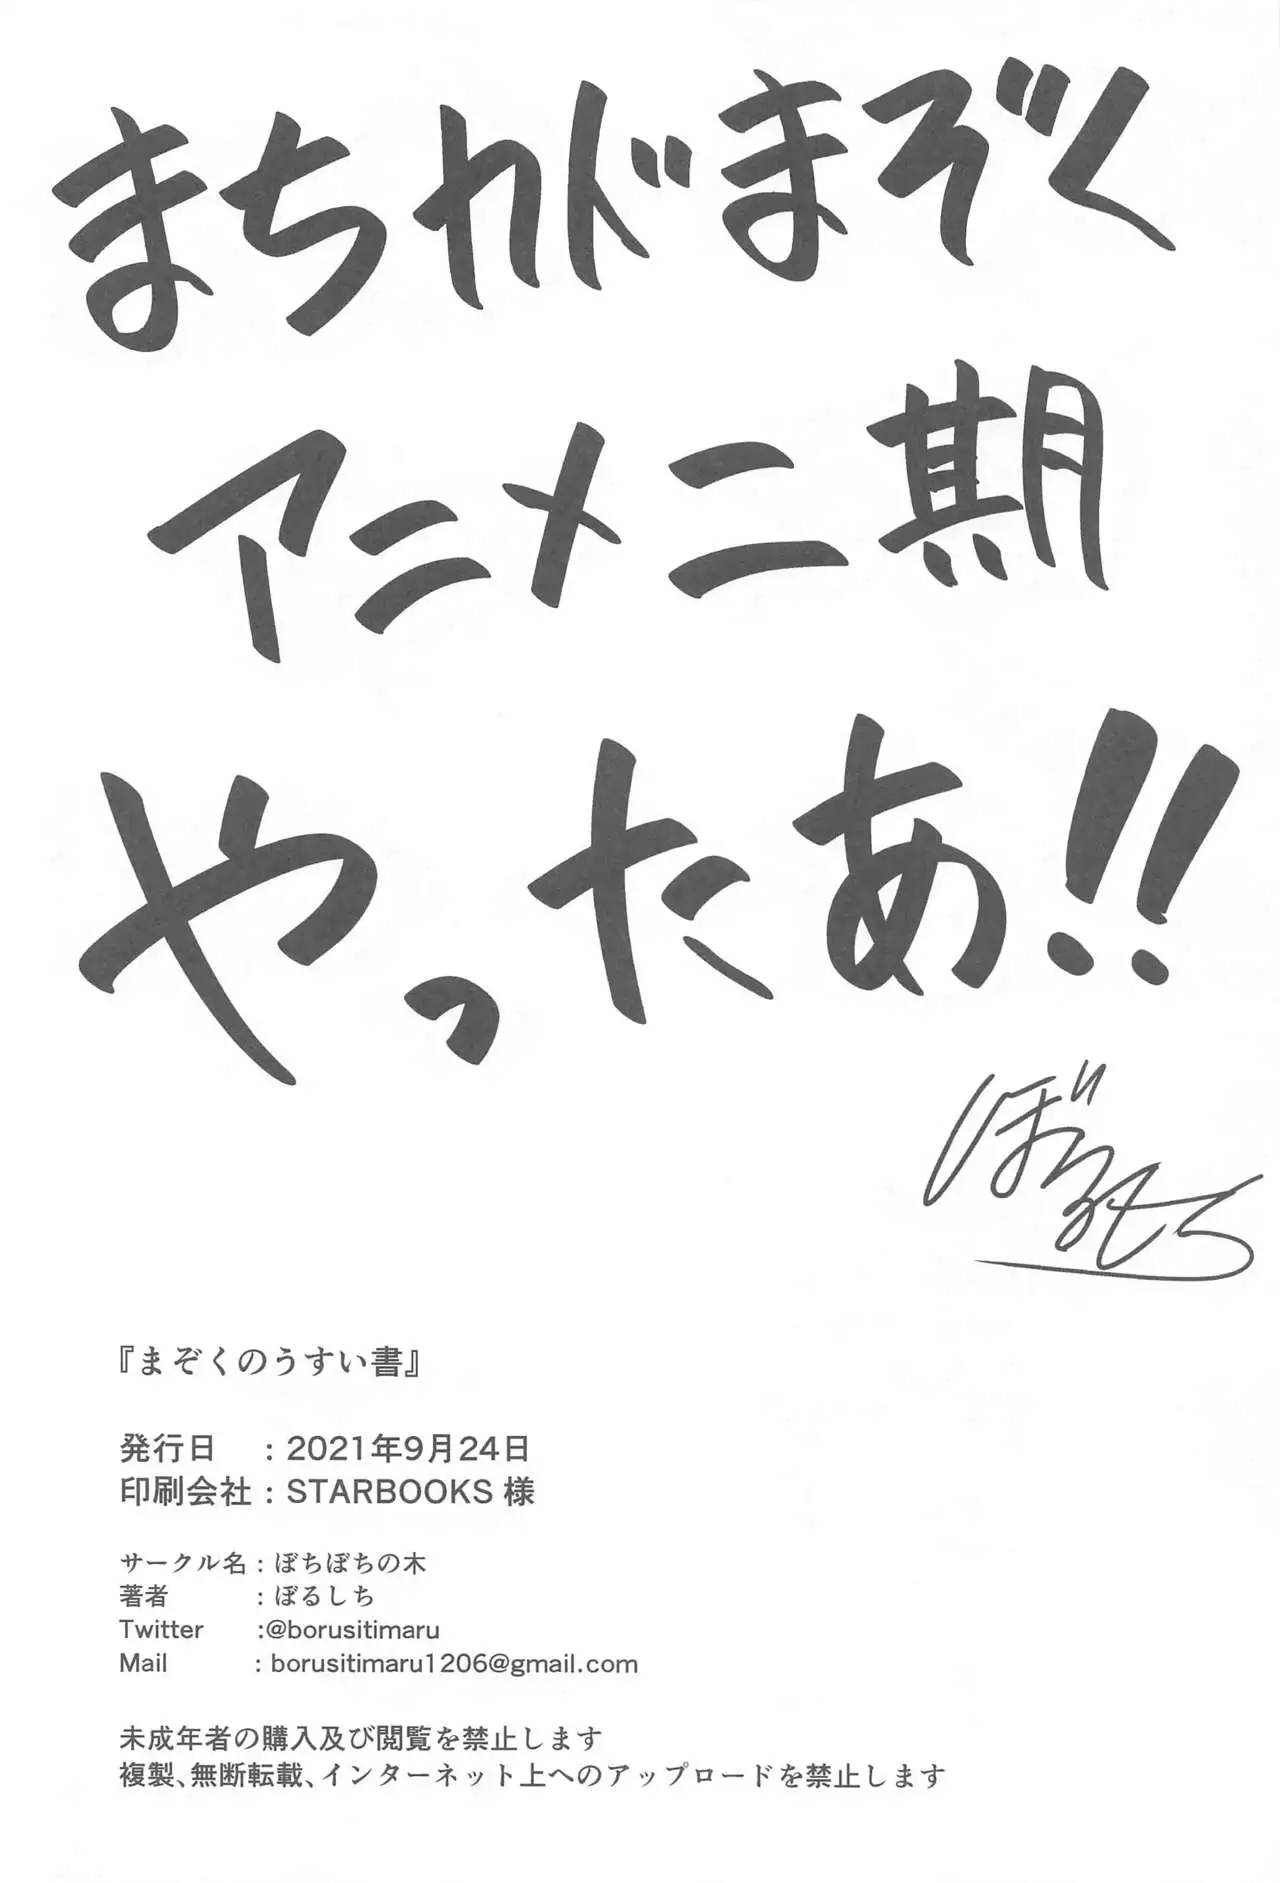 まちカドまぞく
アニメ二期
やったあ!!
ぼるしち
『まぞくのうすい書』
発行日 : 2021年9月24日
印刷会社 : STARBOOKS 様
サークル名 : ぼちぼちの木
著者 : ぼるしち
Twitter :@borusitimaru
Mail : borusitimaru1206@gmail.com
未成年者の購入及び閲覧を禁止します
複製、無断転載、インターネット上へのアップロードを禁止します